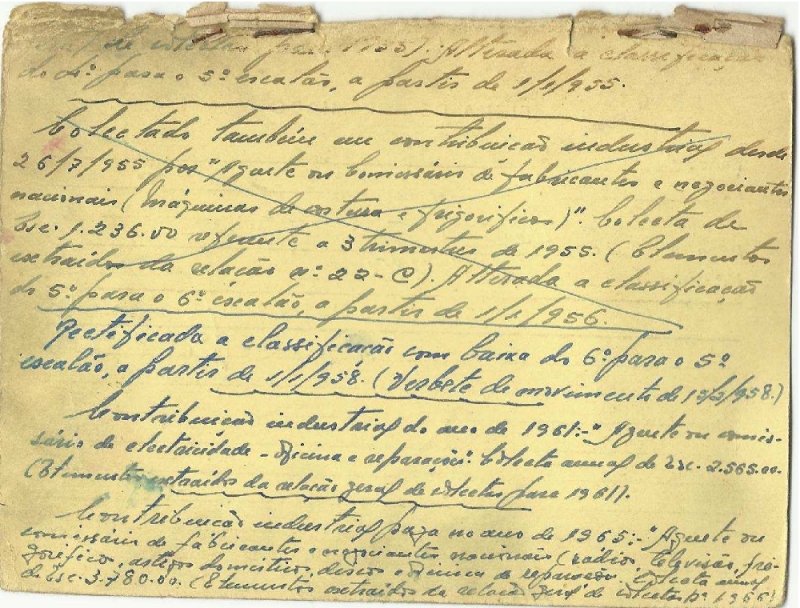 de colectas para 1955). Alterada a classificação
do 4º para o 5º escalão, a partir de 1/1/955.
Colectado também em contribuição industrial desde
26/7/955 por "Agente ou Comissário de fabricantes e negociantes
nacionais (Máquinas de costura e frigoríficos)". Colecta de
Esc. 1.236.00 referente a 3 trimestres de 1955. (Elementos
extraídos da relação nº 22-C). Alterada a classificação
do 5º para o 6º escalão, a partir de 1/1/956.
Rectificada a classificação com baixa do 6º para o 5º
escalão, a partir de 1/1/958. (Verbete de movimento de 12/2/958.)
Contribuição industrial do ano de 1961:- "Agente ou comis-
sário de electricidade - oficina e reparações". Colecta anual de Esc. 2.565.00.
(Elementos extraídos da relação geral de colectas para 1961).
Contribuição industrial paga no ano de 1965:- "Agente ou
comissário de fabricantes e negociantes nacionais (radios, televisão, fri-
goríficos, artigos domésticos, discos e oficina de reparação. Colecta anual
de Esc. 3.780.00. (Elementos extraídos da relação geral de colectas pª 1966)